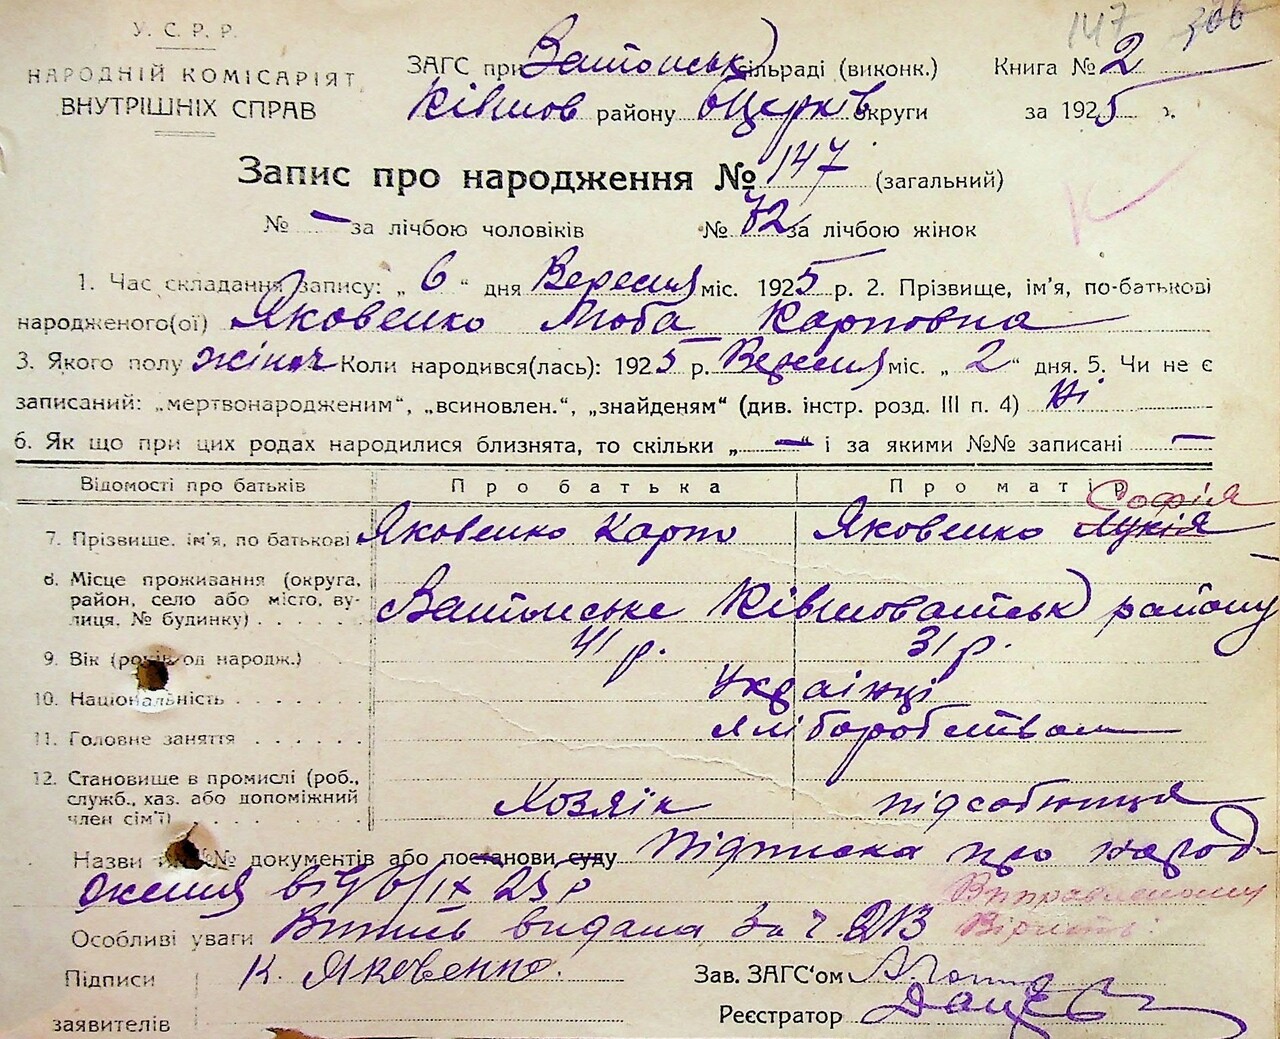 147 306
У.С.Р.Р.
НАРОДНІЙ КОМІСАРІЯТ
ВНУТРІШНІХ СПРАВ
ЗАГС при сільраді (виконк.) Книга № 2
Ківшов району БЦерків округи за 1925 р.
Запис про народження № 147 (загальний)
№ — за лічбою чоловіків № 72 за лічбою жінок
К
1. Час складання запису: „ 6 “ дня Вересня міс. 1925 р. 2. Прізвище, ім'я, по-батькові
народженого(ої) Яковенко Люба Карповна
3. Якого полу жіноч Коли народився(лась): 1925 р. Вересня міс. „ 2 “ дня. 5. Чи не є
записаний: „мертвонародженим“, „всиновлен.“, „знайденям“ (див. інстр. розд. III п. 4) Ні
6. Як що при цих родах народилися близнята, то скільки „ — “ і за якими №№ записані —
Відомості про батьків Про батька Про матір
Софія
7. Прізвище, ім'я, по батькові Яковенко Карпо Яковенко Лукія
8. Місце проживання (округа,
район, село або місто, ву-
лиця, № будинку) Ківшоватськ району
9. Вік (років од народж.) 41 р. 31 р.
10. Національність Українці
11. Головне заняття Хліборобством
12. Становище в промислі (роб.,
служб., хаз. або допоміжний
член сім'ї) Хозяїн підсобниця
Назви й №№ документів або постанови суду Підписка про народ-
ження від 6/IX 25 р
Виправленому
Особливі уваги Витяг видана за ч 213 Вірить:
Підписи К. Яковенко. Зав. ЗАГС'ом
заявителів Реєстратор